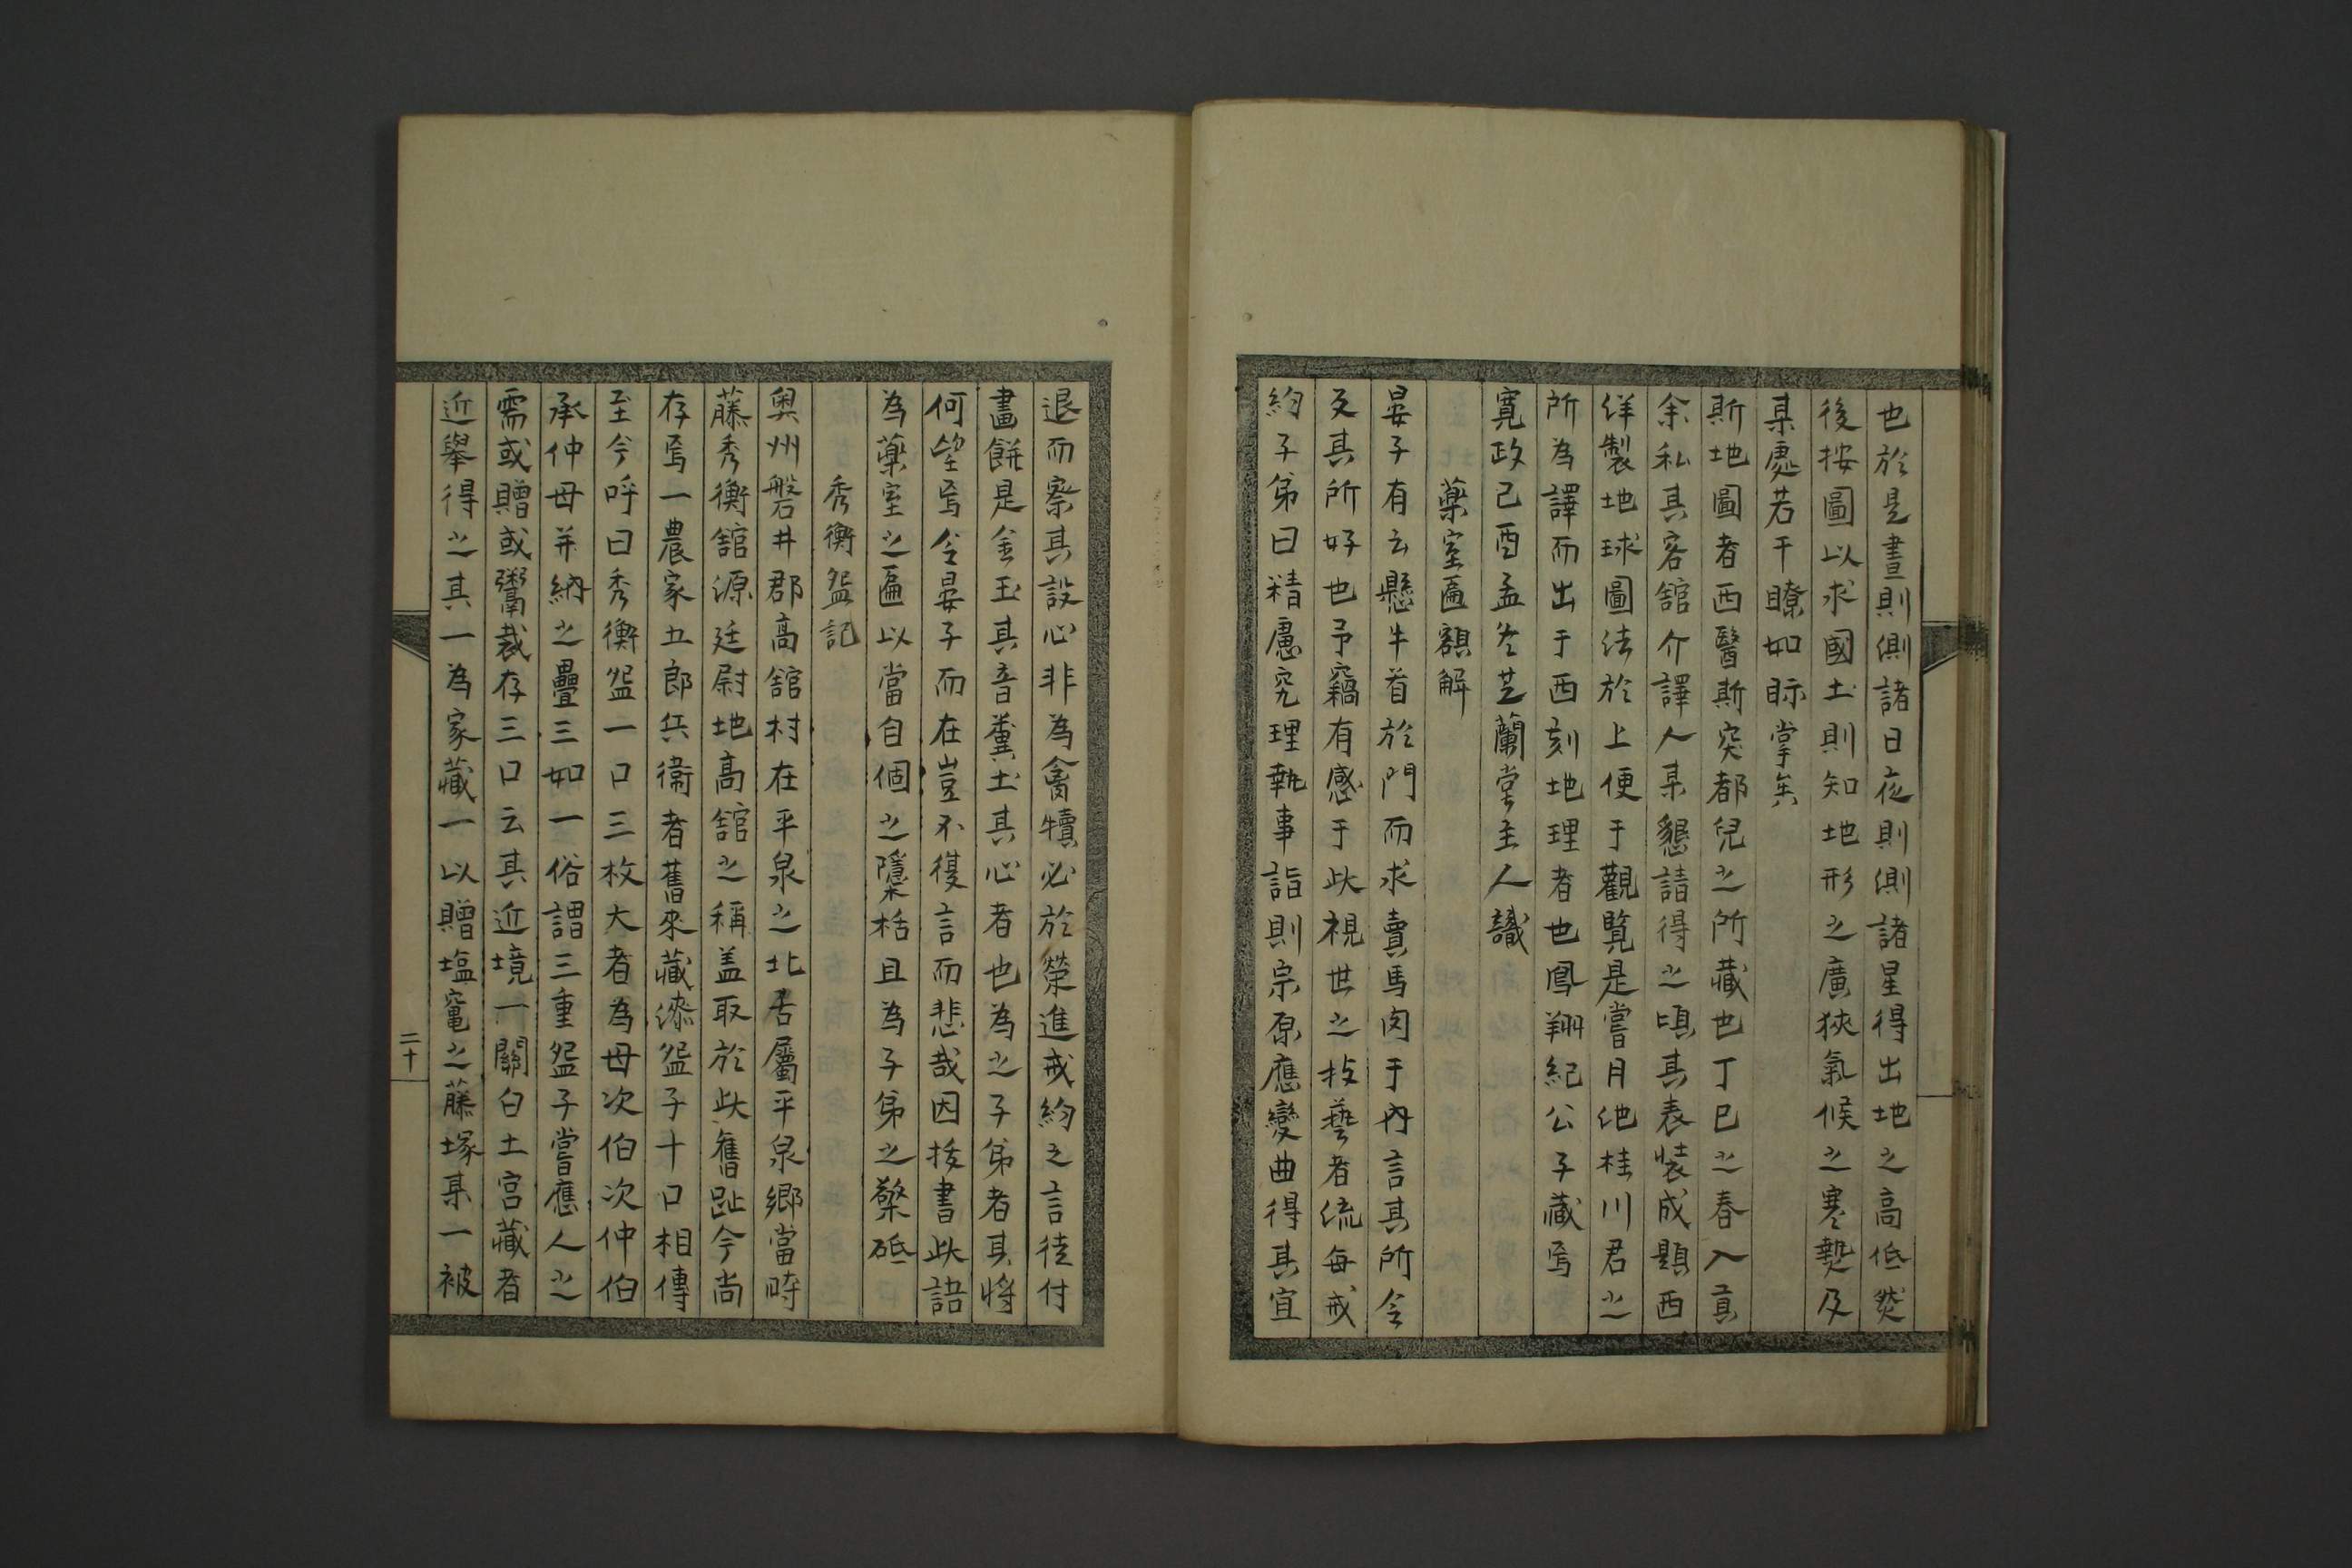 也於是晝則測諸日夜則測諸星得出地之高低然
後按圖以求國土則知地形之廣狹氣候之寒熱及
某處若干瞭如眎掌矣
斯地圖者西醫斯突都兒之所藏也丁巳之春入貢
余私其客舘介譯人某懇請得之頃其表裝成題西
洋製地球圖法於上便于觀覽是嘗月池桂川君之
所為譯而出于西刻地理者也鳳翔紀公子藏焉
寛政己酉孟冬芝蘭堂主人識
藥室匾額解
晏子有云懸牛首於門而求賣馬肉于內言其所令
反其所好也予竊有感于此視世之技藝者流每戒
約子弟曰精慮究理執事詣則宗原應變曲得其宜
退而察其設心非為禽犢必於榮進戒約之言徒付
畫餅是金玉其音糞土其心者也為之子弟者其將
何望焉令晏子而在豈不復言而悲哉因拔書此語
為藥室之匾以當自個之隱栝且為子弟之檠砥
秀衡盌記
奥州磐井郡高舘村在平泉之北舌屬平泉鄉當時
藤秀衡舘源廷尉地高舘之稱盖取於此舊趾今尚
存焉一農家五郎兵衞者舊來藏漆盌子十口相傳
至今呼曰秀衡盌一口三枚大者為母次伯次仲伯
承仲母并納之疊三如一俗謂三重盌子嘗應人之
需或贈或鬻裁存三口云其近境一關白土宮藏者
近舉得之其一為家藏一以贈塩竃之藤塚某一被
二十